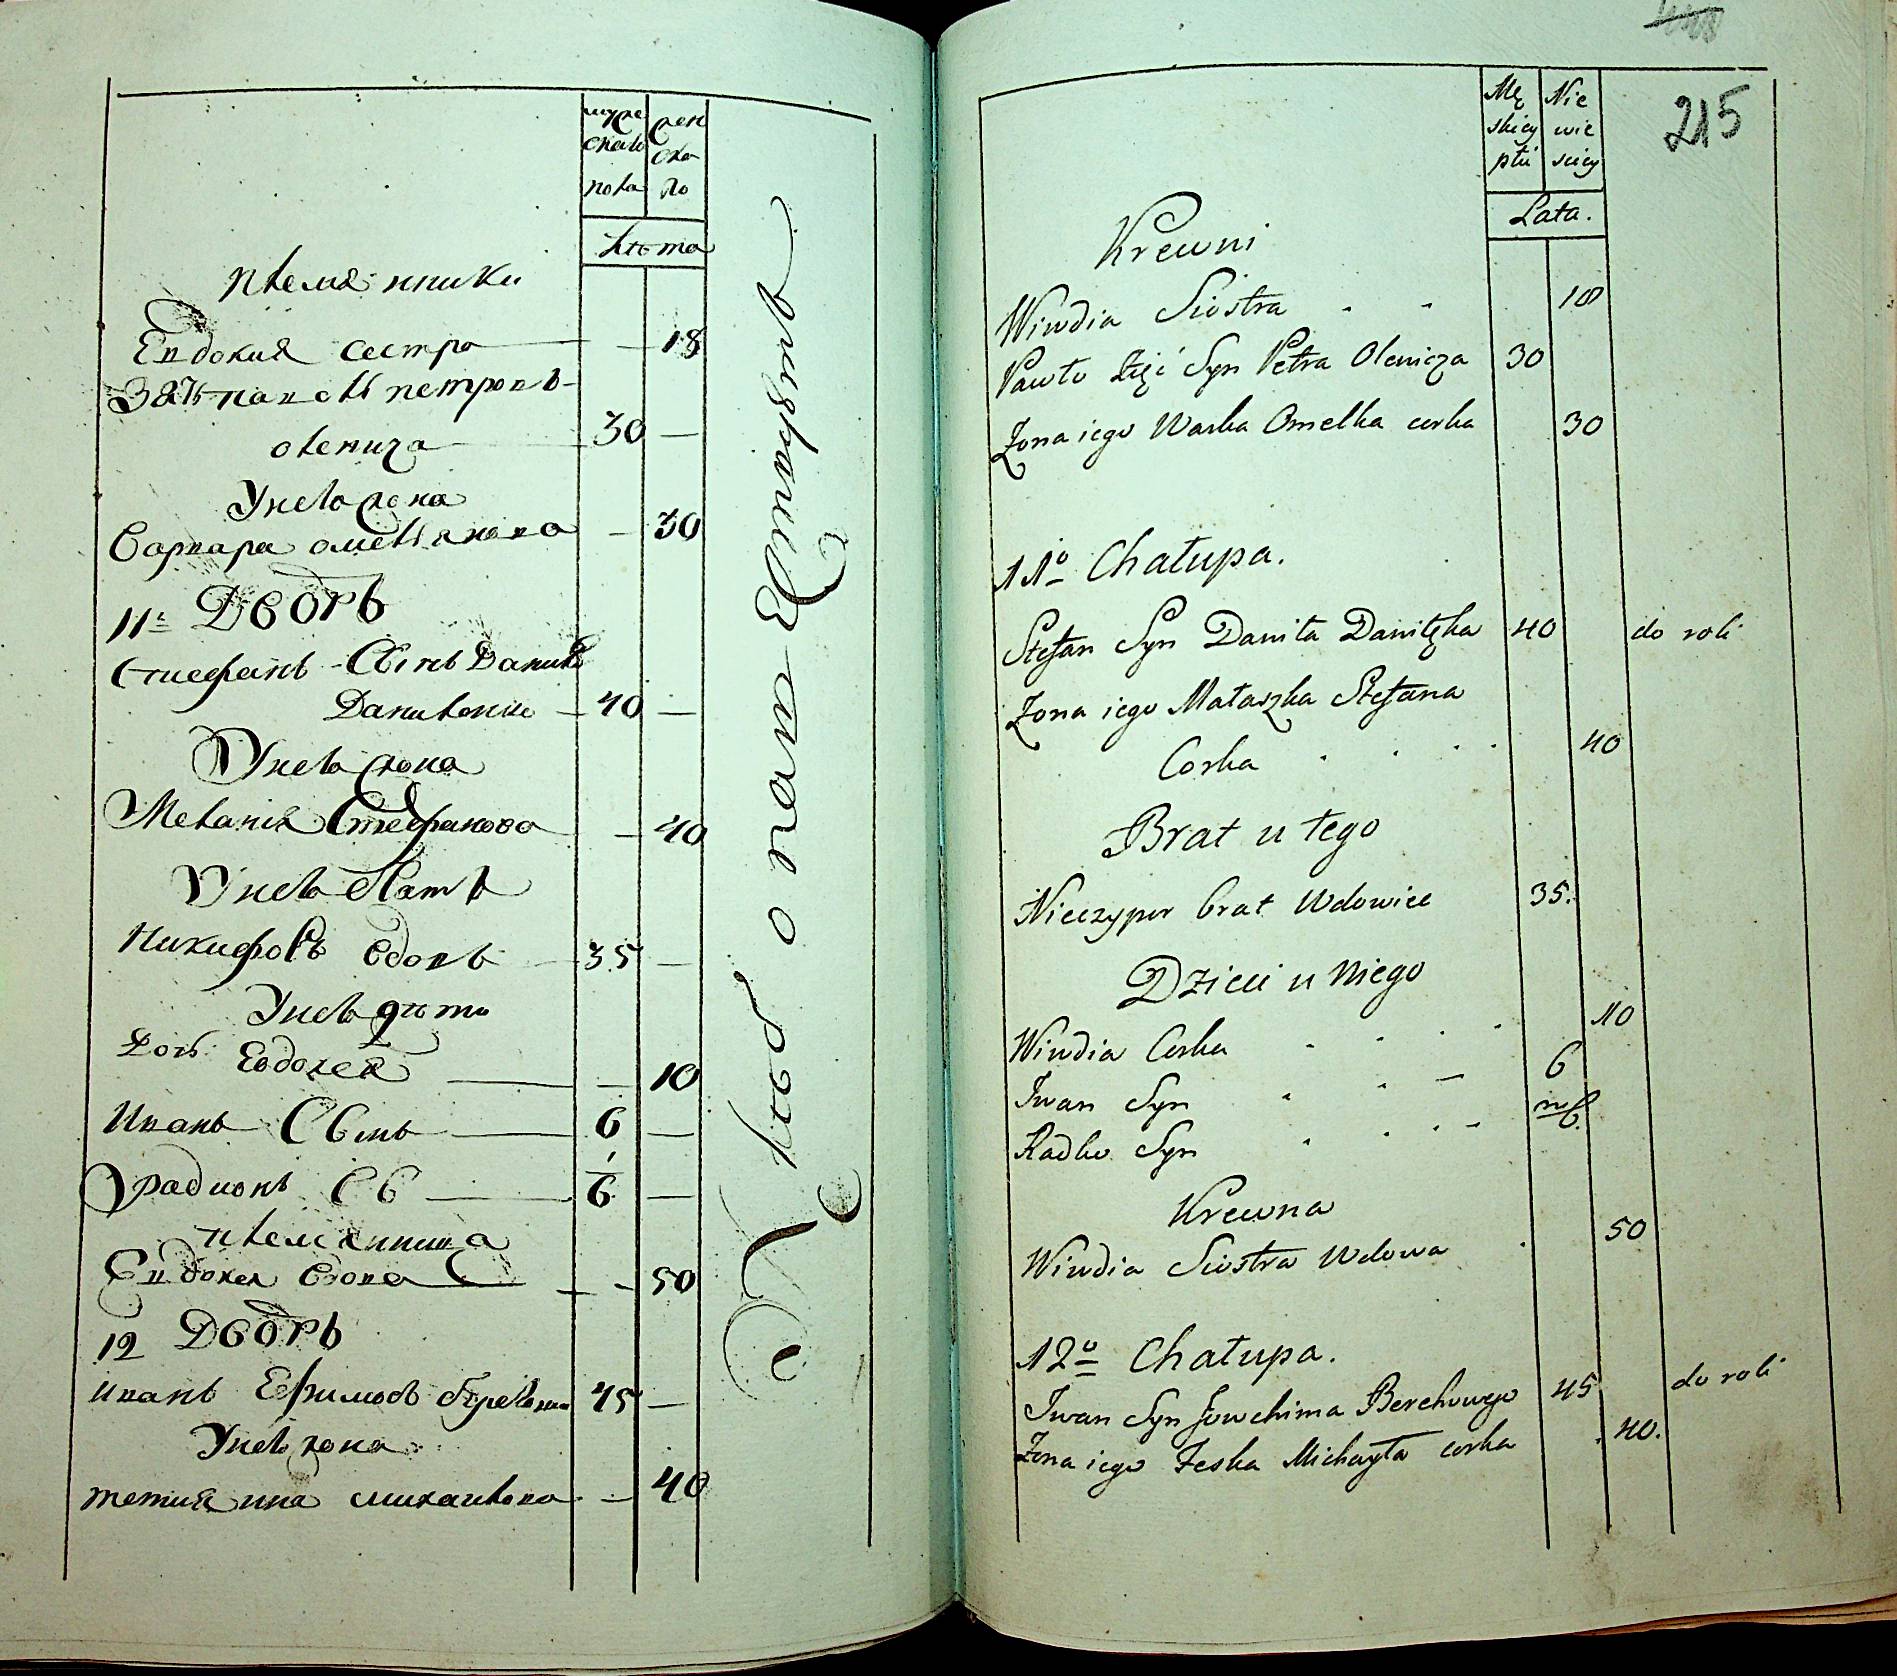 муже
скаго
пола
жен
ска
го
лѣта
племянники
Евдокия сестра — 18
Зять павелъ петровъ
оленича 30 —
У нево жона
Варвара омельянова — 30
11: Дворъ
Стиефанъ Сынъ Данила
Даниленко 40 —
У нево жона
Меланія Стефанова — 40
У нево братъ
Никифоръ вдовъ 35 —
У нево дѣти
Дочь Евдокея — 10
Иванъ Сынъ 6 —
радионъ Сы 1/6 —
племянница
Евдокея вдова — 50
12 Дворъ
иванъ Ефимовъ 45 —
У нево жона
тетиянна михаилова — 40
215
Mę
skiey
płci
Nie
wie
sciey
Lata.
Krewni
Wiwdia Siostra 18
Pawło Zięć Syn Petra Olenicza 30
Zona iego Warka Omelka corka 30
11o Chałupa.
Stefan Syn Daniła Daniłęka 40 do roli
Zona iego Małaszka Stefana
Corka 40
Brat u tego
Nieczypor brat Wdowiec 35.
Dzieci u Niego
Wiwdia Corka 10
Iwan Syn 6
Radko Syn
Krewna
Wiwdia Siostra Wdowa 50
12o Chałupa.
Iwan Syn Jowchima Berehowego 45 do roli
Zona iego Feska Michayła corka 40.